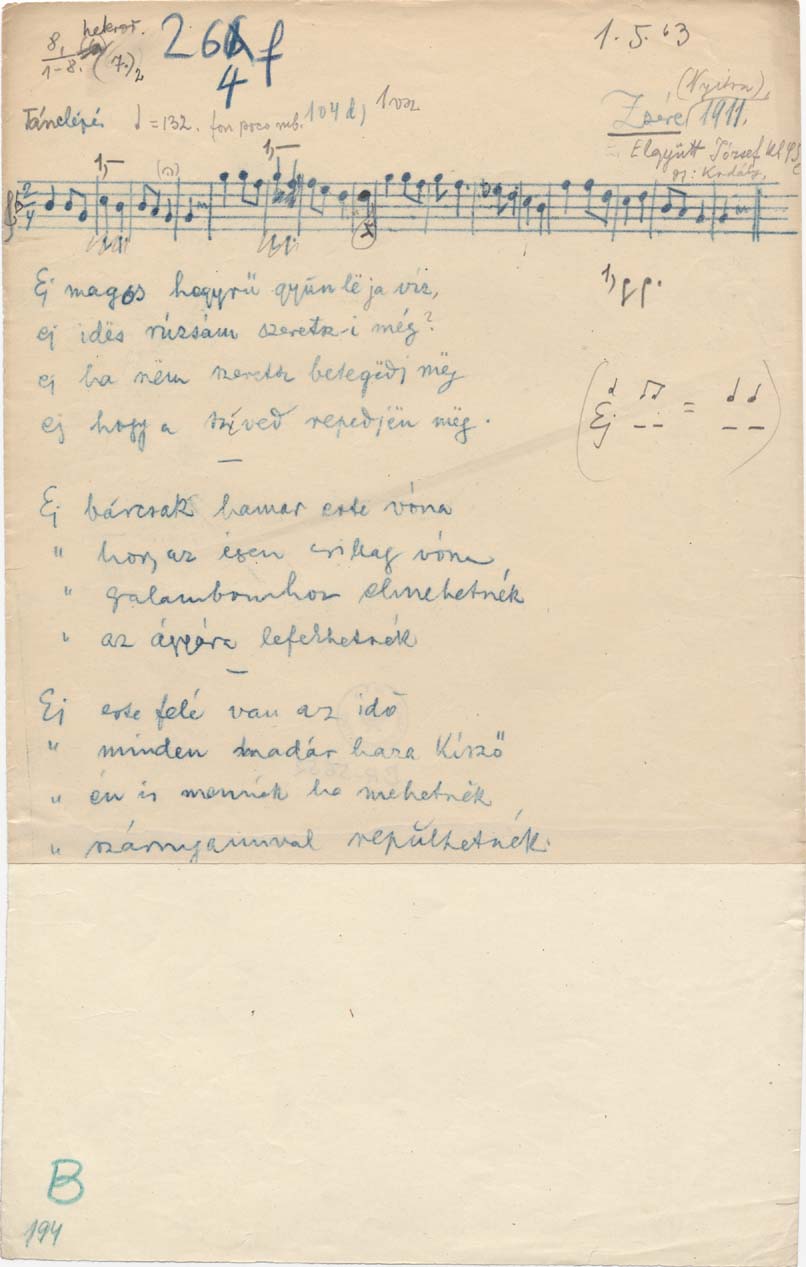 heteror.
8, 1-8. (7.)2
264 f
1.5.63
Tánclépés ♩=132. fon poco mb. 104 d) 1 vsz
(Nyitra),
Zsére 1911.
Együtt József
gy: Kodály,
1,—
1,—
2/4
x
Ej magos hogyrű gyűn lë ja víz,
ej idës rúzsám szeretsz-i még?
ej ha nëm szeretsz betegëdj mëg
ej hogy a szíved repedjën mëg.
1,
(Ej = )
Ej bárcsak hamar este vóna
" az égen csillag vóna
" galambomhoz elmehetnék
" az ággyára lefekhetnék
Ej este felé van az idő
" minden madár haza kísző
" én is mennék ha mehetnék
" szárnyammal repűlhetnék.
B
194